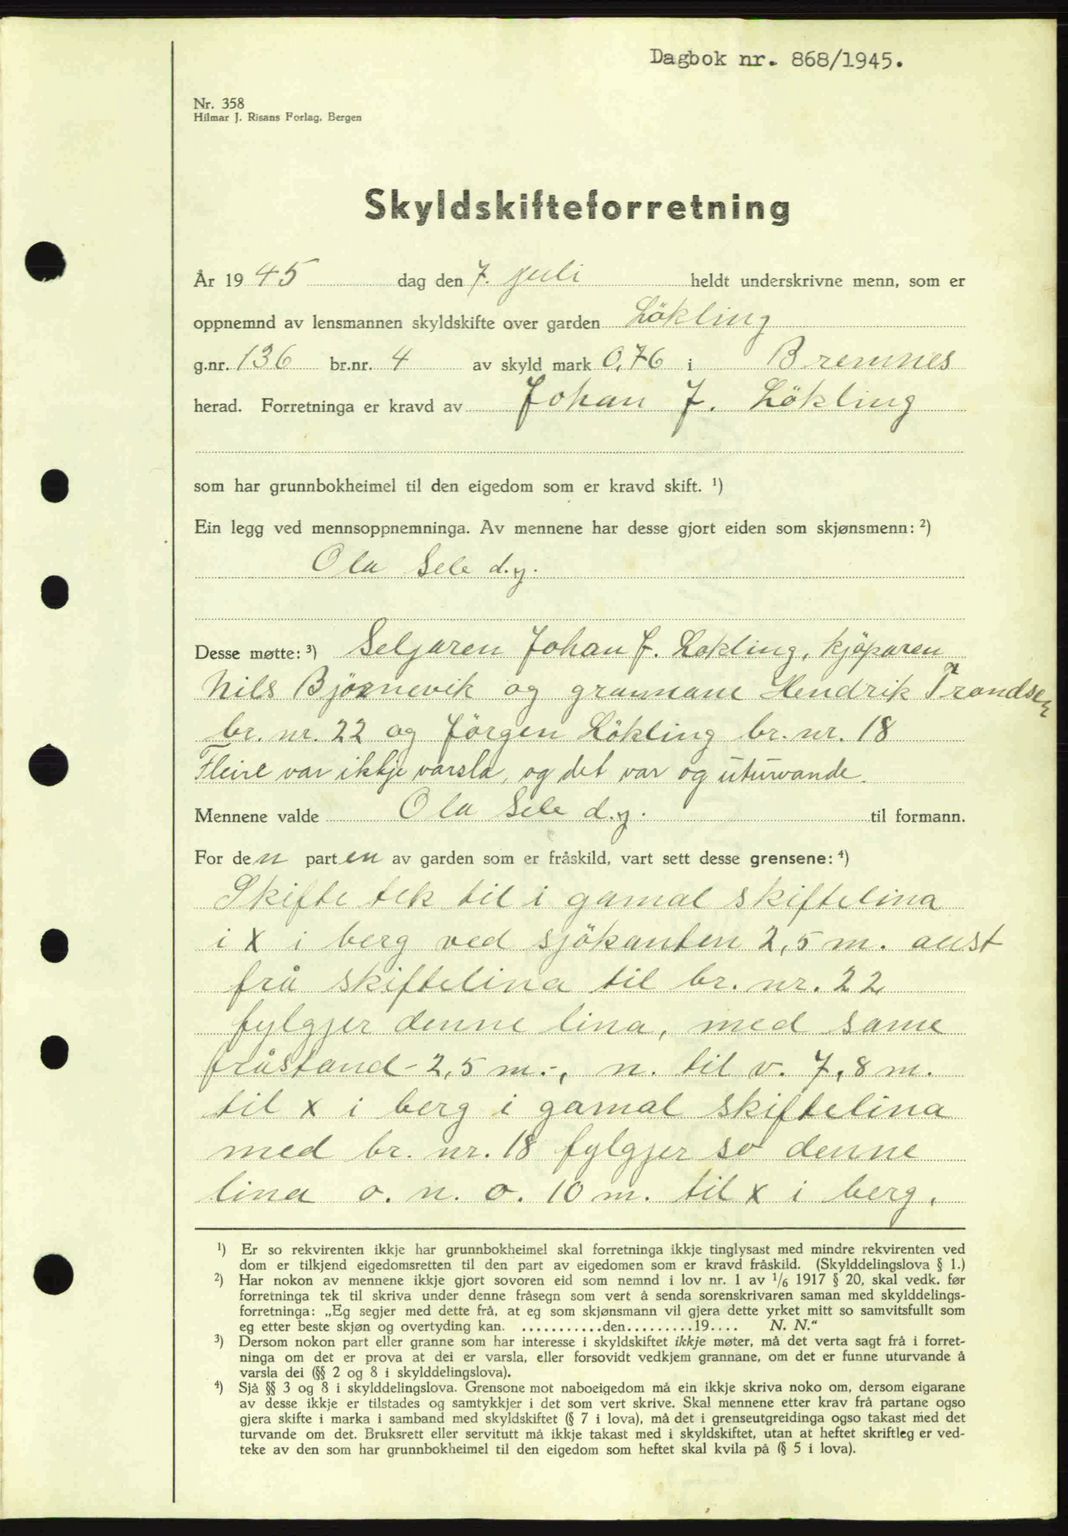 Dagbok nr. 868/1945.
Nr. 358
Hilmar J. Risans Forlag, Bergen
Skyldskifteforretning
År 1945 dag den 7. juli heldt underskrivne menn, som er
oppnemnd av lensmannen skyldskifte over garden Lökling
g.nr. 136 br.nr. 4 av skyld mark 0,76 i Bremnes
herad. Forretninga er kravd av Johan J. Lökling
som har grunnbokheimel til den eigedom som er kravd skift. ¹)
Ein legg ved mennsoppnemninga. Av mennene har desse gjort eiden som skjønsmenn: ²)
Ola Sele d.y.
Desse møtte: ³) Seljaren Johan J. Lökling, kjöparen
Nils Björnevik og grannane Hendrik Trondsen
br. nr. 22 og Jörgen Lökling br. nr. 18
Fleire var ikkje varsla, og det var og uturvande.
Mennene valde Ola Sele d.y. til formann.
For den parten av garden som er fråskild, vart sett desse grensene: ⁴)
Skifte tek til i gamal skiftelina
i x i berg ved sjökanten 2,5 m. aust
frå skiftelina til br. nr. 22
fylgjer denne lina, med same
fråstand - 2,5 m. -, n. til v. 7,8 m.
til x i berg i gamal skiftelina
med br. nr. 18 fylgjer so denne
lina o. n. o. 10 m. til x i berg.
¹) Er so rekvirenten ikkje har grunnbokheimel skal forretninga ikkje tinglysast med mindre rekvirenten ved
dom er tilkjend eigedomsretten til den part av eigedomen som er kravd fråskild. (Skylddelingslova § 1.)
²) Har nokon av mennene ikkje gjort sovoren eid som nemnd i lov nr. 1 av 1/6 1917 § 20, skal vedk. før
forretninga tek til skriva under denne fråsegn som vert å senda sorenskrivaren saman med skylddelings-
forretninga: „Eg segjer med dette frå, at eg som skjønsmann vil gjera dette yrket mitt so samvitsfullt som
eg etter beste skjøn og overtyding kan. ...........den.........19.... N. N."
³) Dersom nokon part eller granne som har interesse i skyldskiftet ikkje møter, må det verta sagt frå i forret-
ninga om det er prova at dei er varsla, eller forsovidt vedkjem grannane, om det er funne uturvande å
varsla dei (§§ 2 og 8 i skylddelingslova).
⁴) Sjå §§ 3 og 8 i skylddelingslova. Grensone mot naboeigedom må ein ikkje skriva noko om, dersom eigarane
av desse ikkje er tilstades og samtykkjer i det som vert skrive. Skal mennene etter krav frå partane ogso
gjera skifte i marka i samband med skyldskiftet (§ 7 i lova), må det i grenseutgreidinga ogso takast med det
turvande om det. Bruksrett eller servitutt må ikkje takast med i skyldskiftet, utan at heftet skriftleg er ved-
teke av den som har grunnbokheimel til den eigedom som heftet skal kvila på (§ 5 i lova).